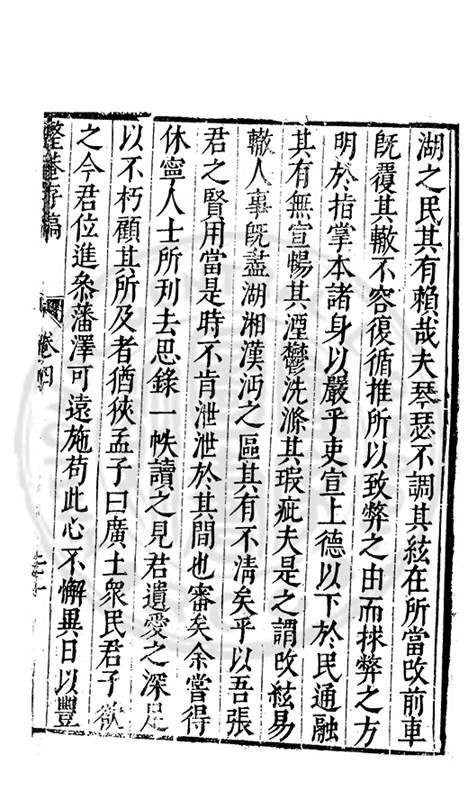 湖之民其有賴哉夫琴瑟不調其絃在所當改前車
旣覆其轍不容復循推所以致弊之由而捄弊之方
明於指掌本諸身以嚴乎吏宣上德以下於民通融
其有無宣暢其湮鬱洗滌其瑕疵夫是之謂改絃易
轍人事旣盡湖湘漢沔之區其有不清矣乎以吾張
君之賢用當是時不肯泄泄於其間也審矣余嘗得
休寧人士所刋去思錄一帙讀之見君遺愛之深足
以不朽顧其所及者猶狹孟子曰廣土衆民君子欲
之今君位進叅藩澤可遠施苟此心不懈異日以豐
整菴存稿
卷四